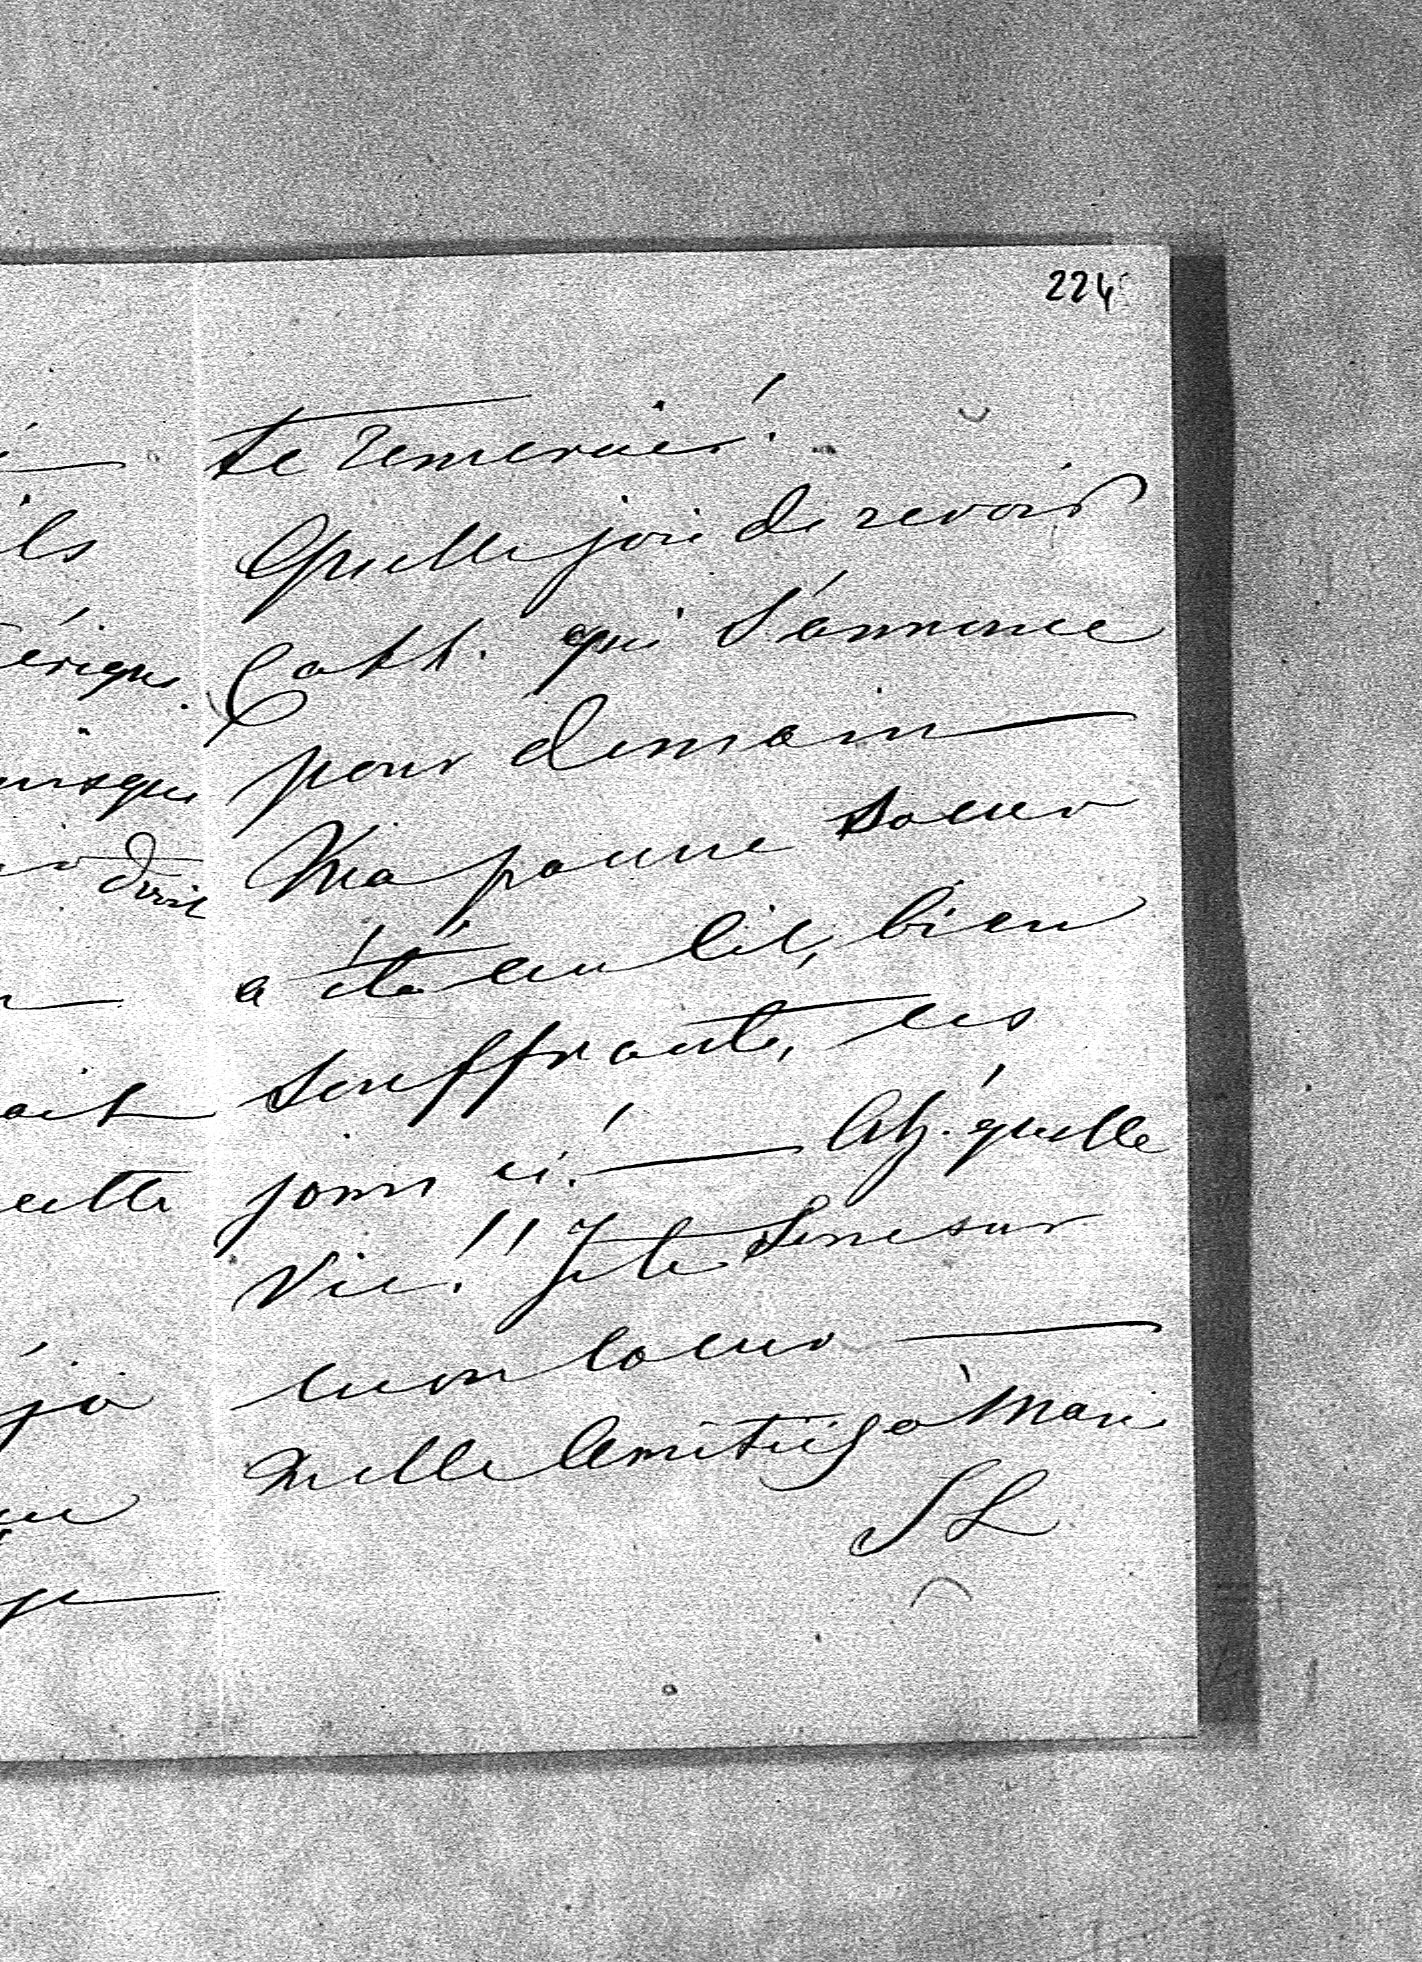 224
te remercier!
Quelle joie de revoir
Cath. qui s'annonce
pour demain —
Ma pauvre soeur
a été au lit, bien
souffrante, ces
jours ci! — Ah! quelle
Vie!! Je te serre sur
mon coeur —
Mille amitiés à Marie
SL
ils
érique
uisque
droit
ait
cette